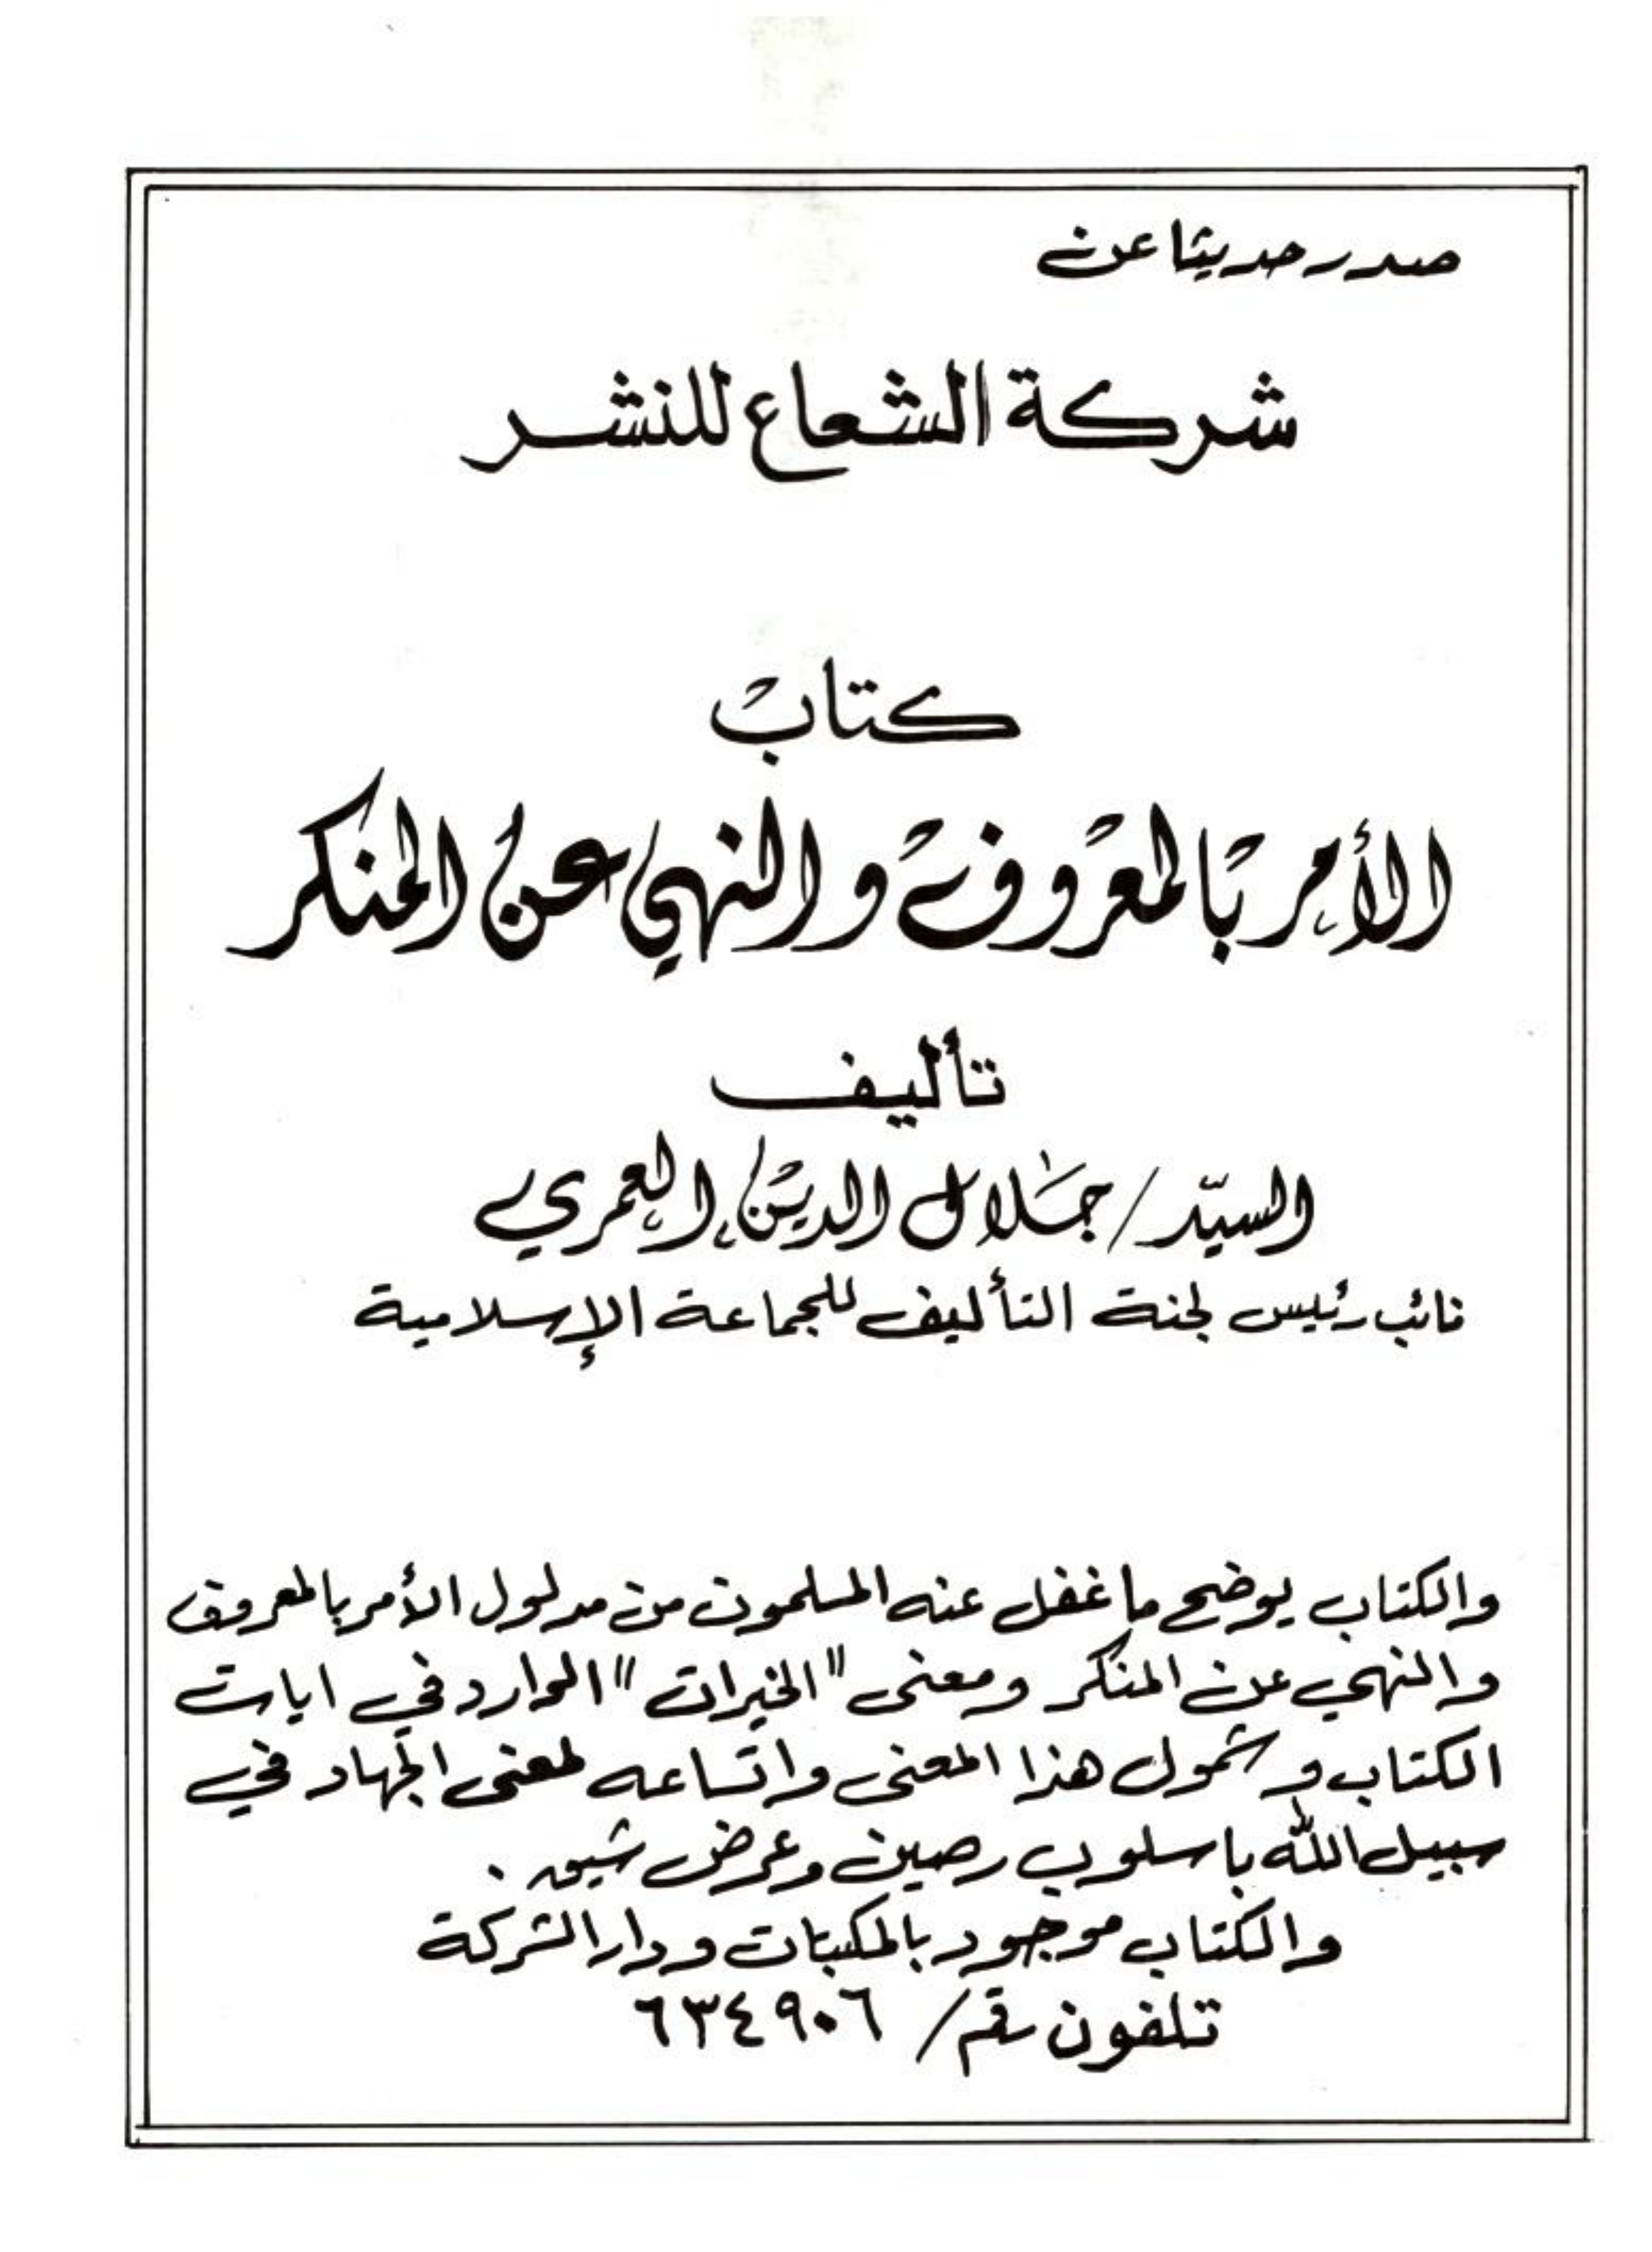 صدر حديثا عن
شركة الشعاع للنشر
كتاب
الأمر بالمعروف والنهي عن المنكر
تأليف
السيّد / جلال الدين العمري
نائب رئيس لجنة التأليف للجماعة الإسلامية
والكتاب يوضح ما غفل عنه المسلمون من مدلول الأمر بالمعروف
والنهي عن المنكر ومعنى "الخيرات" الوارد في ايات
الكتاب وشمول هذا المعنى واتساعه لمعنى الجهاد في
سبيل الله باسلوب رصين وعرض شيق .
والكتاب موجود بالمكتبات ودار الشركة
تلفون رقم / ٦٣٤٩٠٦